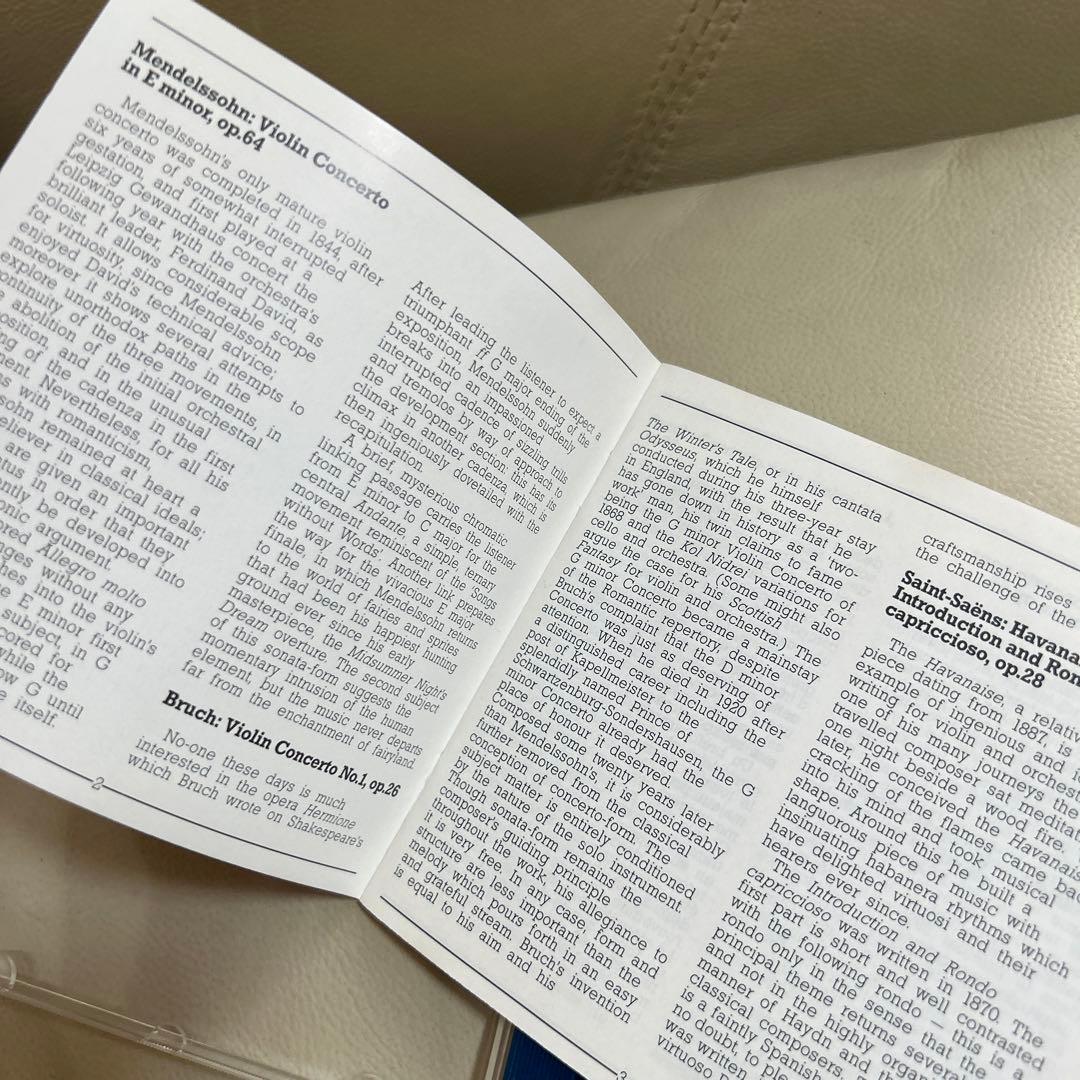 Mendelssohn: Violin Concerto
in E minor, op.64
Mendelssohn's only mature violin
concerto was completed in 1844, after
six years of somewhat interrupted
gestation, and first played at a
Leipzig Gewandhaus concert the
following year with the orchestra's
brilliant leader, Ferdinand David, as
soloist. It allows considerable scope
for virtuosity, since Mendelssohn
enjoyed David's technical advice;
moreover it shows several attempts to
explore unorthodox paths in the
continuity of the three movements, in
abolition of the initial orchestral
position, and in the unusual
of the cadenza in the first
ment. Nevertheless, for all his
with romanticism,
sohn remained at heart a
believer in classical ideals;
are given an important
in order that they
ently be developed into
onic argument.
ored Allegro molto
nges without any
ches into the violin's
E minor first
subject, in G
cored for
while the
ow G until
itself.
After leading the listener to expect a
triumphant ff G major ending of the
exposition, Mendelssohn suddenly
breaks into an impassioned
interrupted cadence of sizzling trills
and tremolos by way of approach to
the development section; this has its
climax in another cadenza, which is
then ingeniously dovetailed with the
recapitulation.
A brief, mysterious chromatic
linking passage carries the listener
from E minor to C major for the
central Andante, a simple, ternary
movement reminiscent of the 'Songs
without Words'. Another link prepares
the way for the vivacious E major
finale, in which Mendelssohn returns
to the world of fairies and sprites
that had been his happiest hunting
ground ever since his early
masterpiece, the Midsummer Night's
Dream overture. The second subject
of this sonata-form suggests the
momentary intrusion of the human
element, but the music never departs
far from the enchantment of fairyland.
Bruch: Violin Concerto No.1, op.26
No-one these days is much
interested in the opera Hermione
which Bruch wrote on Shakespeare's
2
The Winter's Tale, or in his cantata
Odysseus, which he himself
conducted during his three-year stay
in England, with the result that he
has gone down in history as a 'two-
work' man, his twin claims to fame
being the G minor Violin Concerto of
1868 and the Kol Nidrei variations for
cello and orchestra. (Some might also
argue the case for his Scottish
Fantasy for violin and orchestra.) The
G minor Concerto became a mainstay
of the Romantic repertory, despite
Bruch's complaint that the D minor
Concerto was just as deserving of
attention. When he died in 1920 after
a distinguished career including the
post of Kapellmeister to the
splendidly named Prince of
Schwarzenburg-Sondershausen, the G
minor Concerto already had the
place of honour it deserved.
Composed some twenty years later
than Mendelssohn's, it is considerably
further removed from the classical
conception of concerto-form. The
subject matter is entirely conditioned
by the nature of the solo instrument.
Though sonata-form remains the
composer's guiding principle
throughout the work, his allegiance to
it is very free. In any case, form and
structure are less important than the
melody which pours forth in an easy
and grateful stream. Bruch's invention
is equal to his aim, and his
craftsmanship rises
the challenge of the
Saint-Saëns: Havana
Introduction and Ron
capriccioso, op.28
The Havanaise, a relativ
piece dating from 1887, is
example of ingenious and i
writing for violin and orchest
one of his many journeys the
travelled composer sat meditat
one night beside a wood fire, a
later, he conceived the Havanais
cracking of the flames came ba
into his mind and took musical
shape. Around this he built a
languorous piece of music with
insinuating habanera rhythms which
have delighted virtuosi and their
hearers ever since.
The Introduction and Rondo
capriccioso was written in 1870. The
first part is short and well contrasted
with the following rondo – this is a
rondo only in the sense that the
principal theme returns several
and not in the highly organ
manner of Haydn and other
classical composers. T
is a faintly Spanish
no doubt, to ple
was written,
virtuoso
3